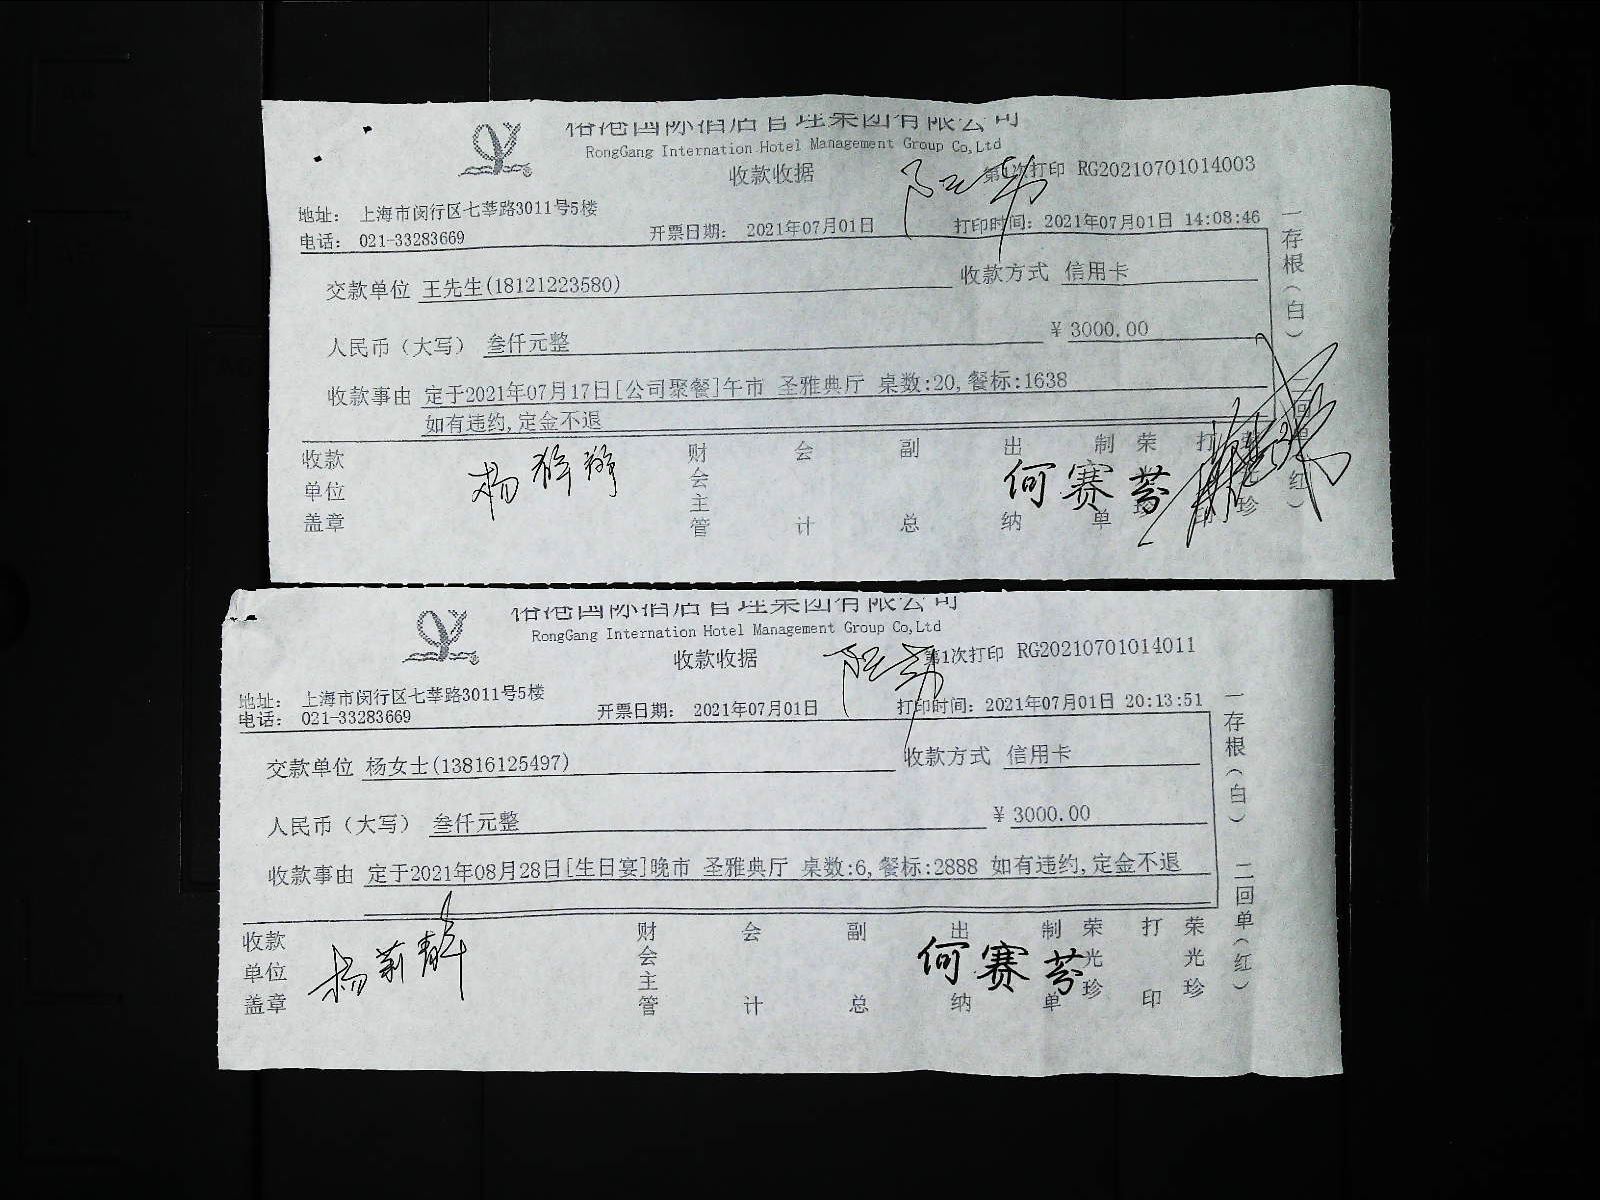 港国际酒店管理集团有限公司
RongGang Internation Hotel Management Group Co,Ltd
收款收据
第1次打印 RG20210701014003
地址： 上海市闵行区七莘路3011号5楼
电话： 021-33283669
开票日期： 2021年07月01日
打印时间：2021年07月01日 14:08:46
交款单位 王先生(18121223580)
收款方式 信用卡
人民币（大写） 叁仟元整
¥ 3000.00
收款事由 定于2021年07月17日[公司聚餐]午市 圣雅典厅 桌数:20,餐标:1638
如有违约,定金不退
收款单位盖章
杨
财会主管
会计
副总
出纳
何赛芬
制单
荣
打印
珍
一存根（白）
二回单（红）
港国际酒店管理集团有限公司
RongGang Internation Hotel Management Group Co,Ltd
收款收据
第1次打印 RG20210701014011
地址： 上海市闵行区七莘路3011号5楼
电话： 021-33283669
开票日期： 2021年07月01日
打印时间：2021年07月01日 20:13:51
交款单位 杨女士(13816125497)
收款方式 信用卡
人民币（大写） 叁仟元整
¥ 3000.00
收款事由 定于2021年08月28日[生日宴]晚市 圣雅典厅 桌数:6,餐标:2888 如有违约,定金不退
收款单位盖章
杨
财会主管
会计
副总
出纳
何赛芬
制单
荣光珍
打印
荣光珍
一存根（白）
二回单（红）